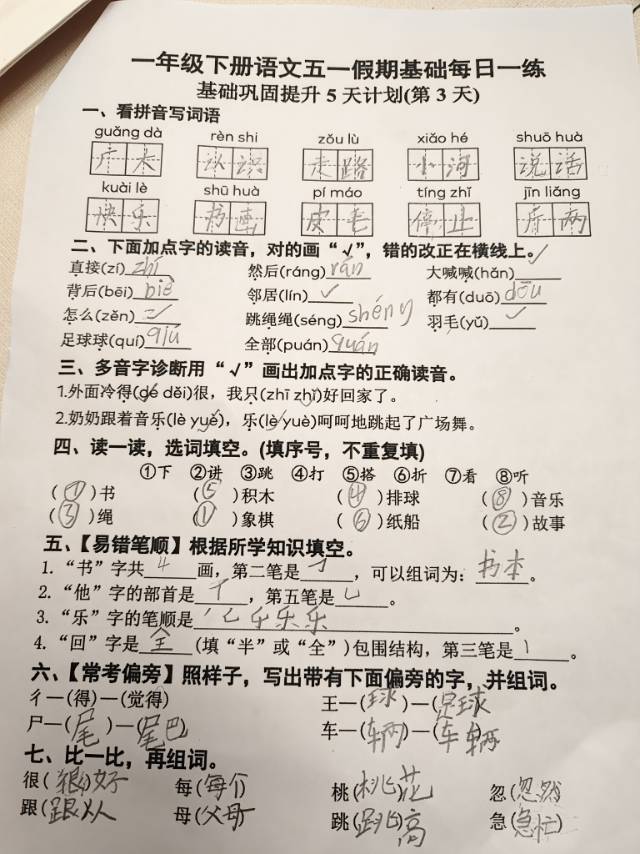 一年级下册语文五一假期基础每日一练
基础巩固提升5天计划(第3天)
一、看拼音写词语
guǎng dà rèn shi zǒu lù xiǎo hé shuō huà
广大 认识 走路 小河 说话
kuài lè shū huà pí máo tíng zhǐ jīn liǎng
快乐 书画 皮毛 停止 斤两
二、下面加点字的读音，对的画“√”，错的改正在横线上。
直接(zí) zhí 然后(ráng) rán 大喊喊(hǎn)
背后(bēi) biè 邻居(lín) √ 都有(duō) dōu
怎么(zěn) √ 跳绳绳(séng) shéng 羽毛(yǔ) √
足球球(quí) qiú 全部(puán) quán
三、多音字诊断用“√”画出加点字的正确读音。
1.外面冷得(gé děi)很，我只(zhī zhǐ)好回家了。
2.奶奶跟着音乐(lè yuè)，乐(lè yuè)呵呵地跳起了广场舞。
四、读一读，选词填空。(填序号，不重复填)
①下 ②讲 ③跳 ④打 ⑤搭 ⑥折 ⑦看 ⑧听
(⑦)书 (⑤)积木 (④)排球 (⑧)音乐
(③)绳 (①)象棋 (⑥)纸船 (②)故事
五、【易错笔顺】根据所学知识填空。
1. “书”字共 4 画，第二笔是，可以组词为：书本。
2. “他”字的部首是 亻，第五笔是乚。
3. “乐”字的笔顺是
4. “回”字是 全 (填“半”或“全”)包围结构，第三笔是丨。
六、【常考偏旁】照样子，写出带有下面偏旁的字，并组词。
彳—(得)—(觉得) 王—(球)—(足球)
尸—(尾)—(尾巴) 车—(辆)—(车辆)
七、比一比，再组词。
很(很好) 每(每个) 桃(桃花) 忽(忽然)
跟(跟从) 母(父母) 跳(跳高) 急(急忙)